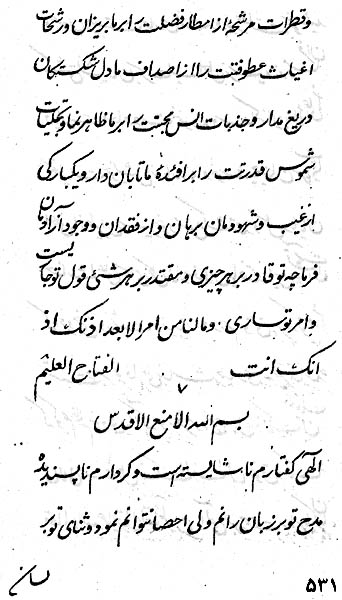 و قطرات مرشحهٔ از امطار فضلت را بر ما بریزان و رشحات
اغیاث عطوفتت را از اصداف ما دل شکستگان
دریغ مدار و جذبات انس محبتت را بر ما ظاهر نما و تجلیات
شموس قدرتت را بر افئدهٔ ما تابان دار و یکبارکی
از غیب و شهودمان برهان و از فقدان و وجود آزادمان
فرما چه تو قادر بر هر چیزی و مقتدر بر هر شئ قول تو جاریست
و امر تو ساری و مالنا من امر الا بعد اذنک اذ
انک انت الفتاح العلیم
٧
بسم الله الامنع الاقدس
الهی گفتارم ناشایسته است و کردارم ناپسندیده
مدح تو بر زبان رانم ولی احصا نتوانم نمود و ثنای تو بر
لسان
۵۳۱